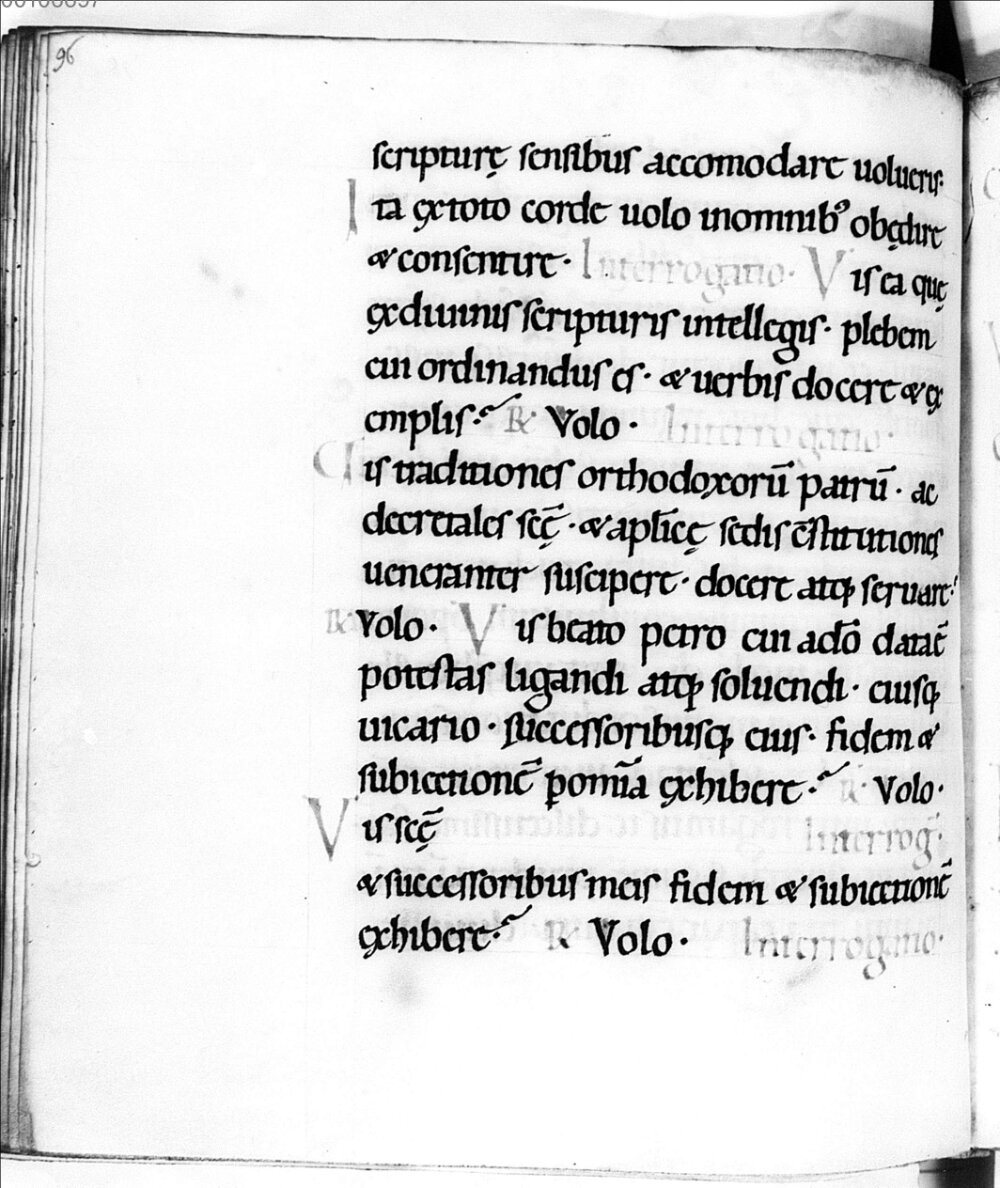 96
scripturę sensibus accomodare uolueris·
Ita ex toto corde uolo inomnib' obędire
& consentire· Interrogatio· Vis ea quę
exdiuinis scripturis intellegis· plebem
cui ordinandus es· & uerbis docere & ex
emplis· ℟ Volo· Interrogatio·
Uis traditiones orthodoxorū patrū· ac
decretales scę̄· & aplīcę sedis c̄stitutiones
ueneranter suscipere· docere atq; seruare·
℟ Volo· Vis beato petro cui adō data ē
potestas ligandi atq; soluendi· eiusq;
uicario· successoribusq; eius· fidem &
subiectionē ꝑ omīa exhibere· ℟ Volo·
Vis scę̄ Interroḡ·
& successoribus meis fidem & subiectionē
exhibere· ℟ Volo· Interrogatio·